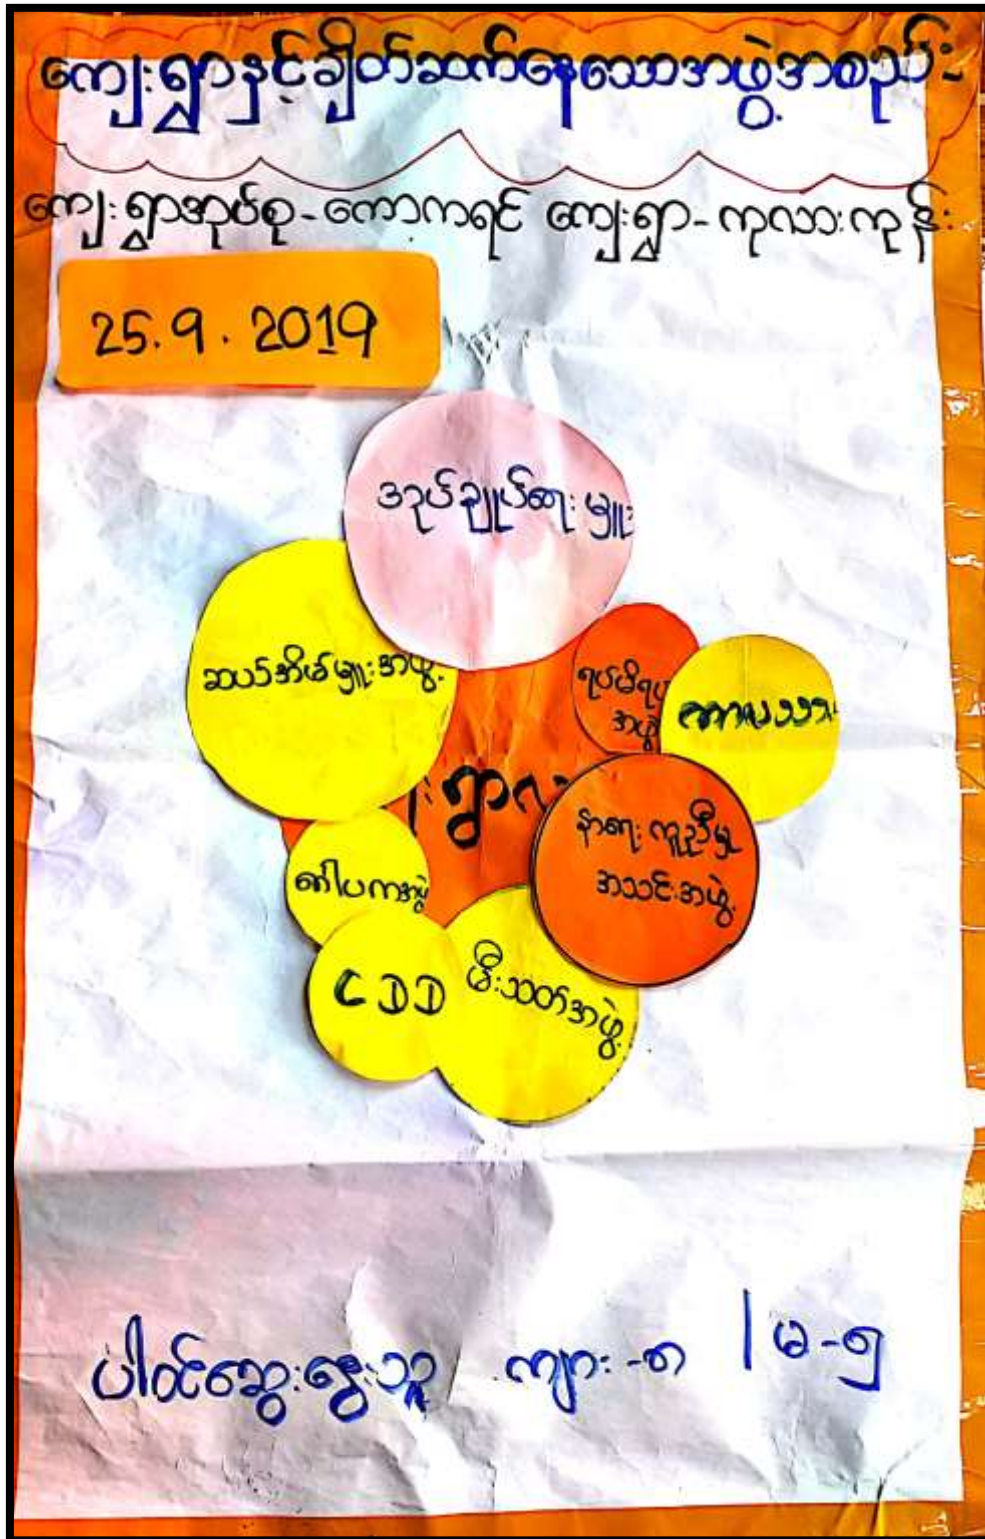 ကျေးရွာနှင့်ချိတ်ဆက်နေသောအဖွဲ့အစည်း
ကျေးရွာအုပ်စု-ကော့ကရင် ကျေးရွာ-ကုလားကုန်း
25.9.2019
အုပ်ချုပ်ရေးမှူး
ဆယ်အိမ်မှူးအဖွဲ့
ရပ်မိရပ်
အဖွဲ့
ကာလသား
း ရွာလ
နာရေးကူညီမှု
အသင်းအဖွဲ့
ဂေါပကအဖွဲ့
CDD
မီးသတ်အဖွဲ့
ပါဝင်ဆွေးနွေးသူ ကျား-၈ / မ-၅